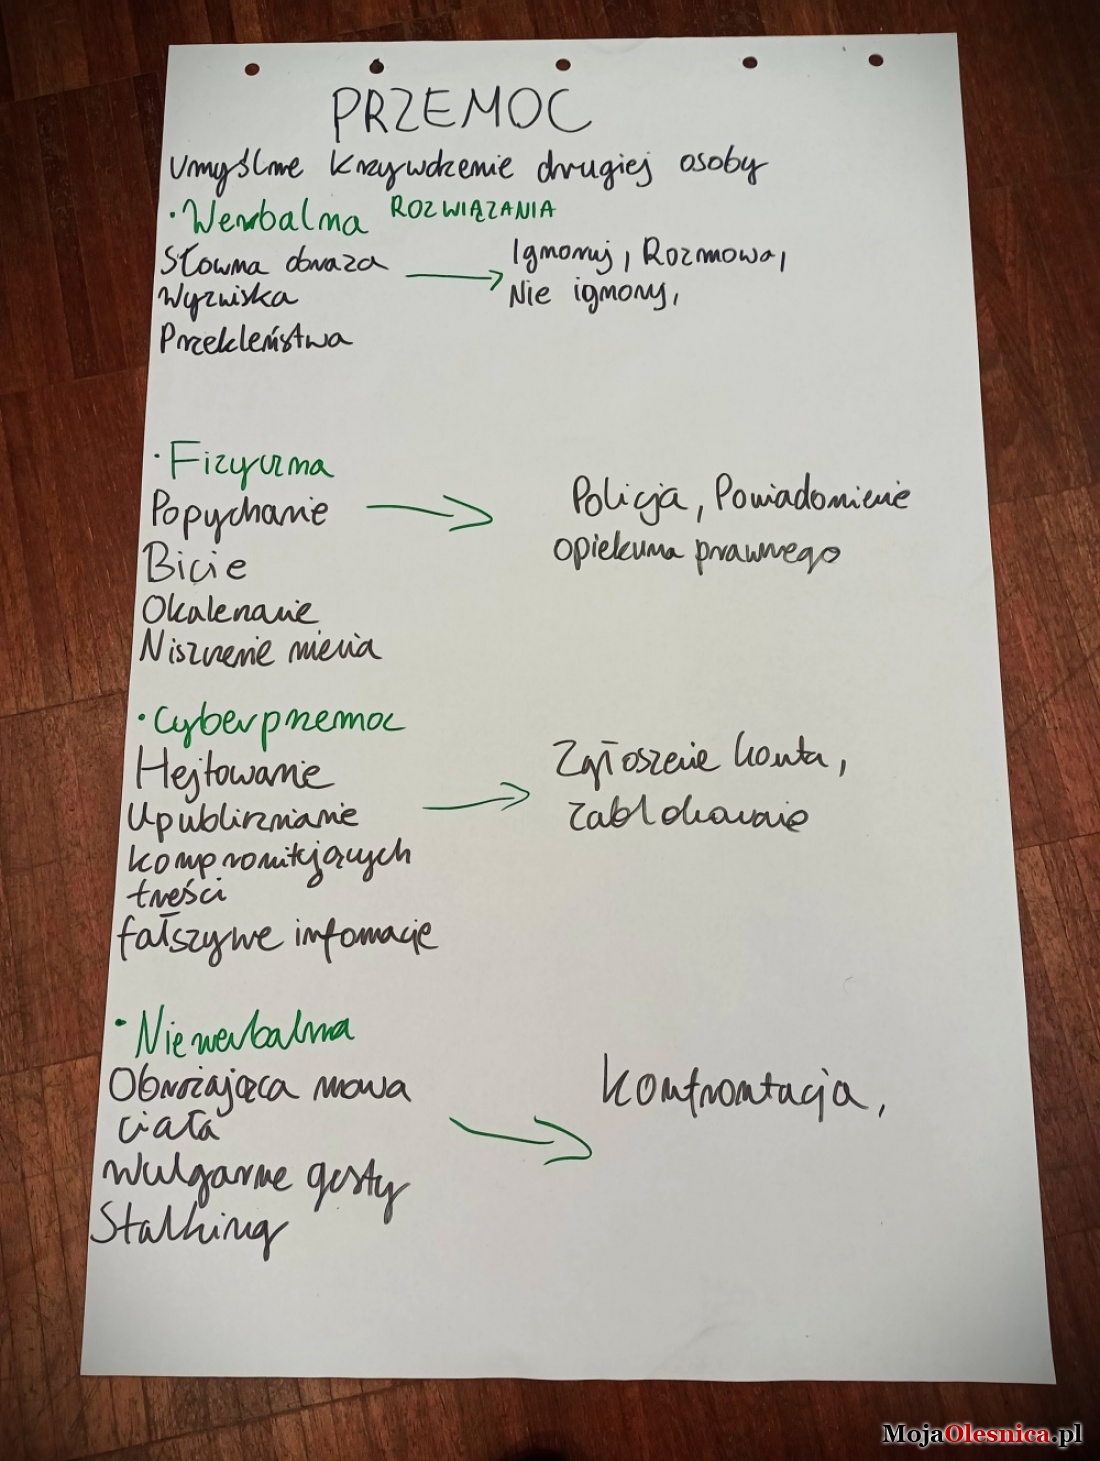 PRZEMOC
Umyślne krzywdzenie drugiej osoby
• Werbalna ROZWIĄZANIA
Słowna obraza → Ignoruj, Rozmowa,
Wyzwiska Nie ignoruj,
Przekleństwa
• Fizyczna
Popychanie → Policja, Powiadomienie
Bicie opiekuna prawnego
Okaleczanie
Niszczenie mienia
• Cyberprzemoc
Hejtowanie → Zgłoszenie konta,
Upublicznianie zablokowanie
kompromitujących
treści
fałszywe infomacje
• Niewerbalna
Obrażająca mowa → Konfrontacja,
ciała
Wulgarne gesty
Stalking
MojaOlesnica.pl